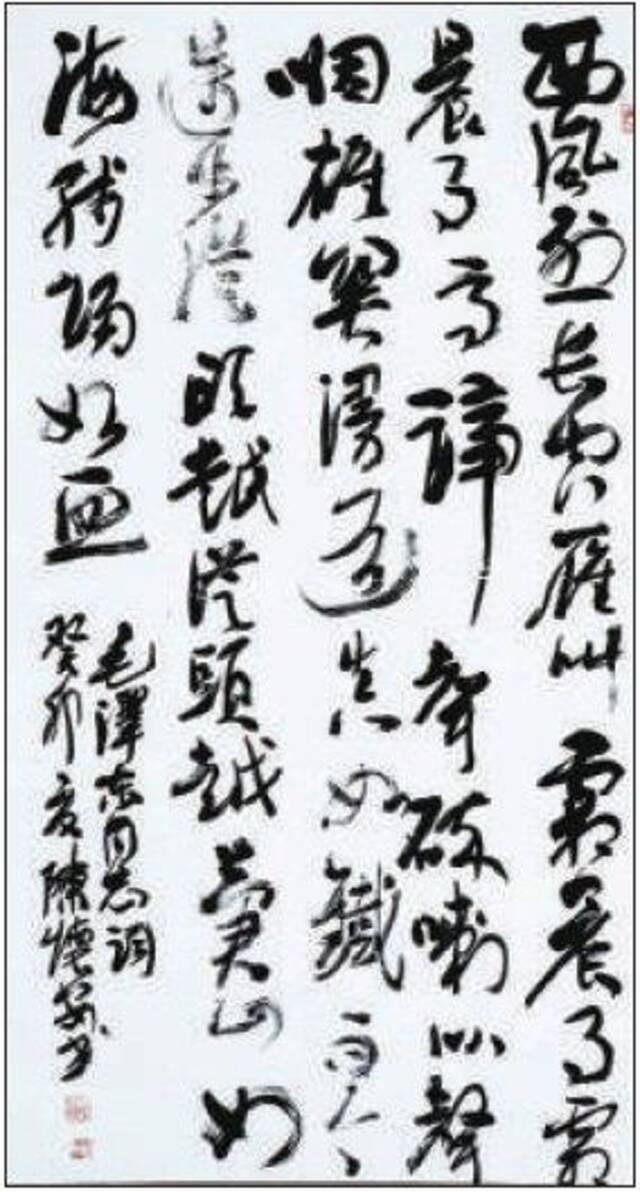 西風烈長空雁叫霜晨月霜
晨月馬蹄聲碎喇叭聲
咽雄關漫道真如鐵而今
邁步從頭越從頭越蒼山如
海殘陽如血
毛澤东同志詞
癸卯夏陳